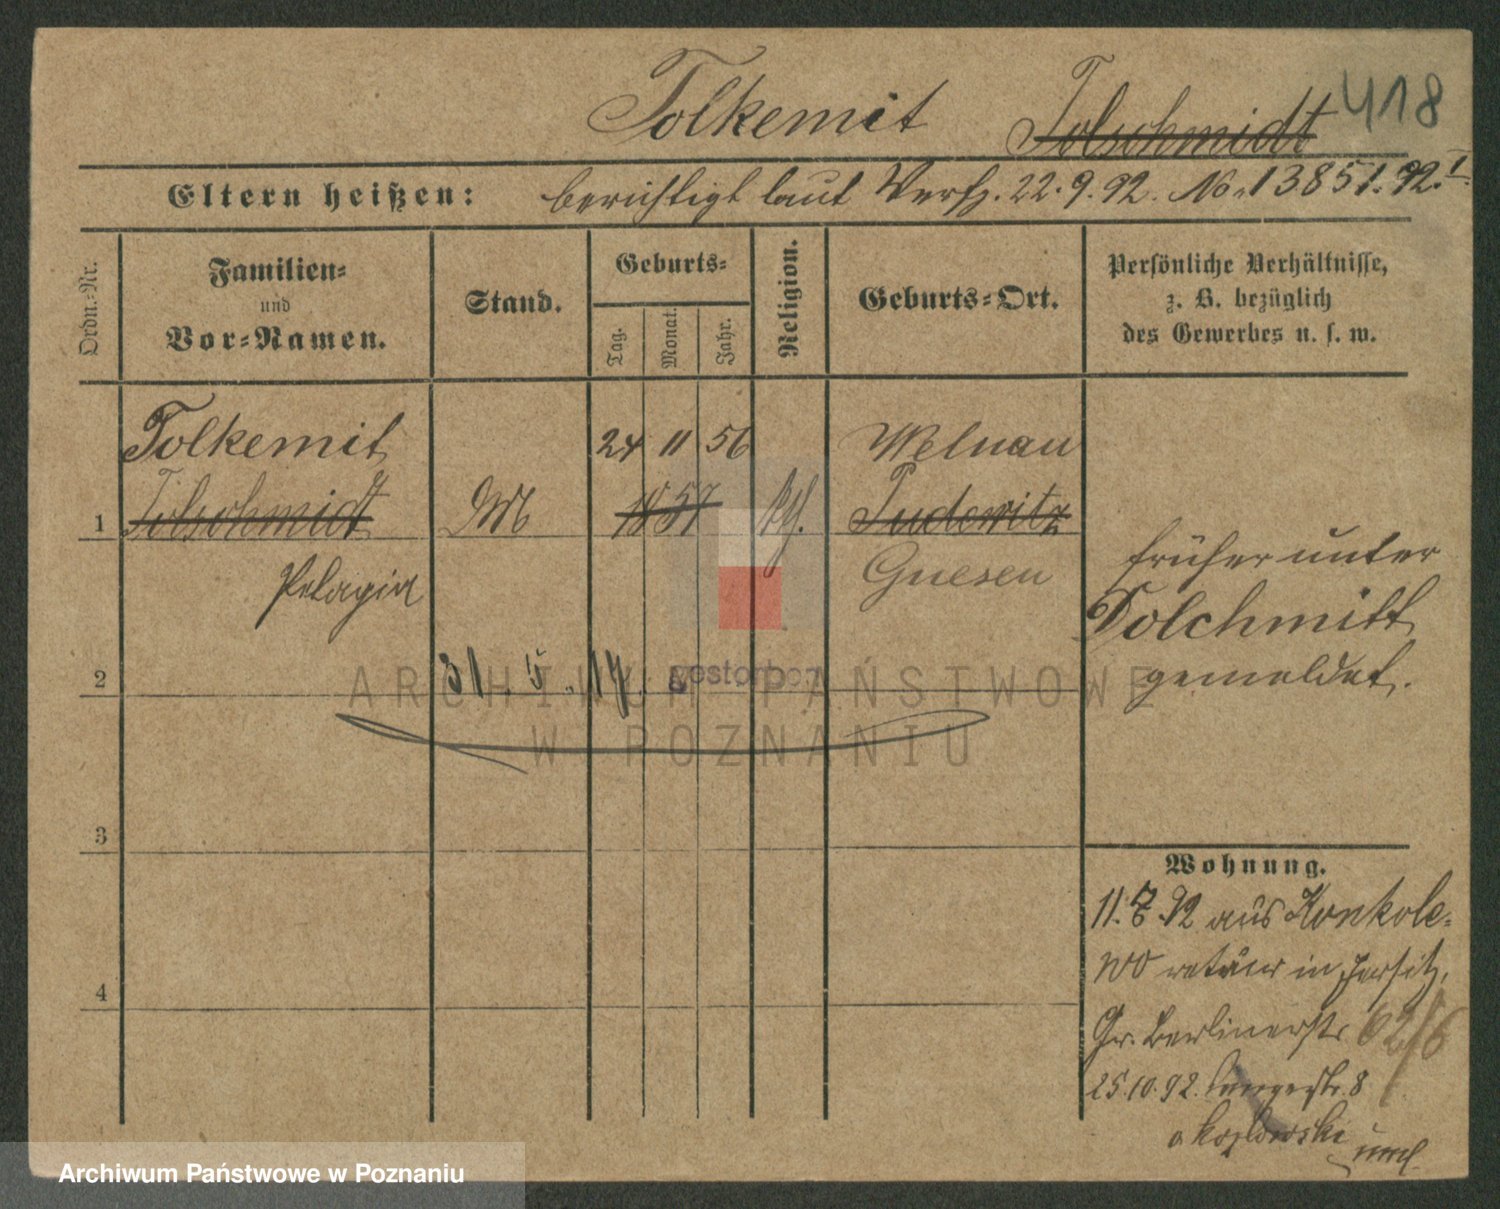 418
Tolkemit Tolschmidt
Eltern heißen: berichtigt laut Verfg. 22.9.92. No. 13851.92. I.
Ordn.-Nr.
Familien-
und
Vor-Namen.
Stand.
Geburts-
Tag.
Monat.
Jahr.
Religion.
Geburts-Ort.
Persönliche Verhältnisse,
z. B. bezüglich
des Gewerbes u. s. w.
Tolkemit 24 11 56 Welnau
1 Tolschmidt M 57 kth. Pudewitz
Pelagia Gnesen
früher unter
Tolchmitt
gemeldet.
2 31. 5. 17. gestorben
ARCHIWUM PAŃSTWOWE
W POZNANIU
3
4
Wohnung.
11.7.92 aus Konkole-
wo retour in Jersitz,
Gr. Berlinerstr. 62/6
25.10.92. Langestr. 8
Archiwum Państwowe w Poznaniu